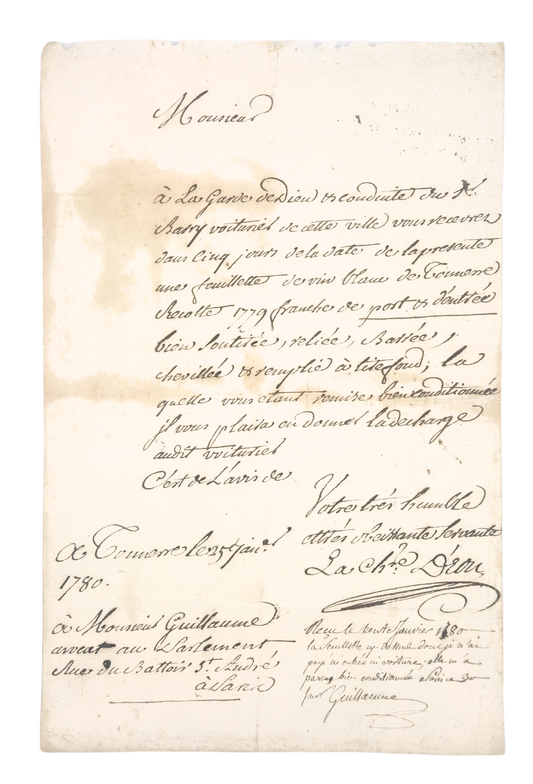 Monsieur
à La Garde de Dieu et conduite du Sr.
Barry voiturier de cette ville vous recevrez
dans Cinq jours de la date de la presente
une feuillette de vin blanc de Tonnerre
Recolte 1779 franche de port et d'entrée
bien soutirée, reliée, Barrée,
chevillée et remplie à tire fond; la
quelle vous etant remise bien conditionnée
il vous plaira en donner la decharge
audit voiturier
C'est de L'avis de
Votre très humble
et très obeissante servante
La Chre. D'eon
A Tonnerre le 25 Janr.
1780.
à Monsieur Guillaume
avocat au Parlement
Rue du Battoir St. André
à Paris
Recu le trente Janvier 1780
la feuillette cy dessus dont je n'ai
payé ni entrée ni voiture, elle m'a
parue bien conditionnée a Paris
Guillaume